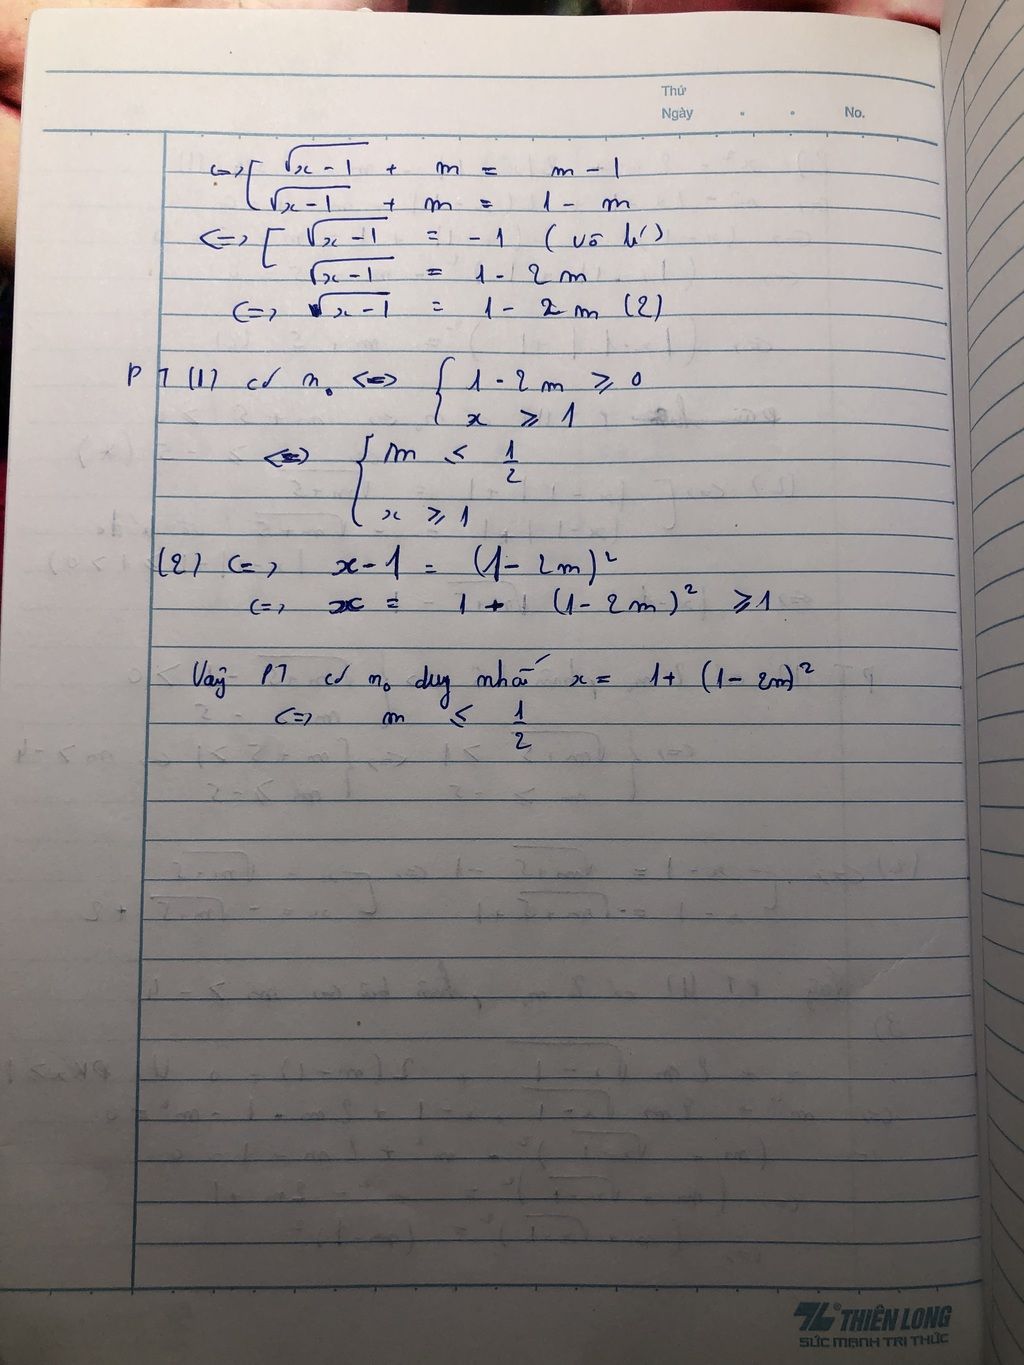 Thứ
Ngày . . No.
<=> [ √x-1 + m = m - 1
√x-1 + m = 1 - m
<=> [ √x-1 = -1 (vô lí)
√x-1 = 1 - 2m
<=> √x-1 = 1 - 2m (2)
PT (1) có n₀ <=> { 1 - 2m ≥ 0
x ≥ 1
<=> { m ≤ 1/2
x ≥ 1
(2) <=> x - 1 = (1 - 2m)²
<=> x = 1 + (1 - 2m)² ≥ 1
Vậy PT có n₀ duy nhất x = 1 + (1 - 2m)²
<=> m ≤ 1/2
THIÊN LONG
SỨC MẠNH TRI THỨC